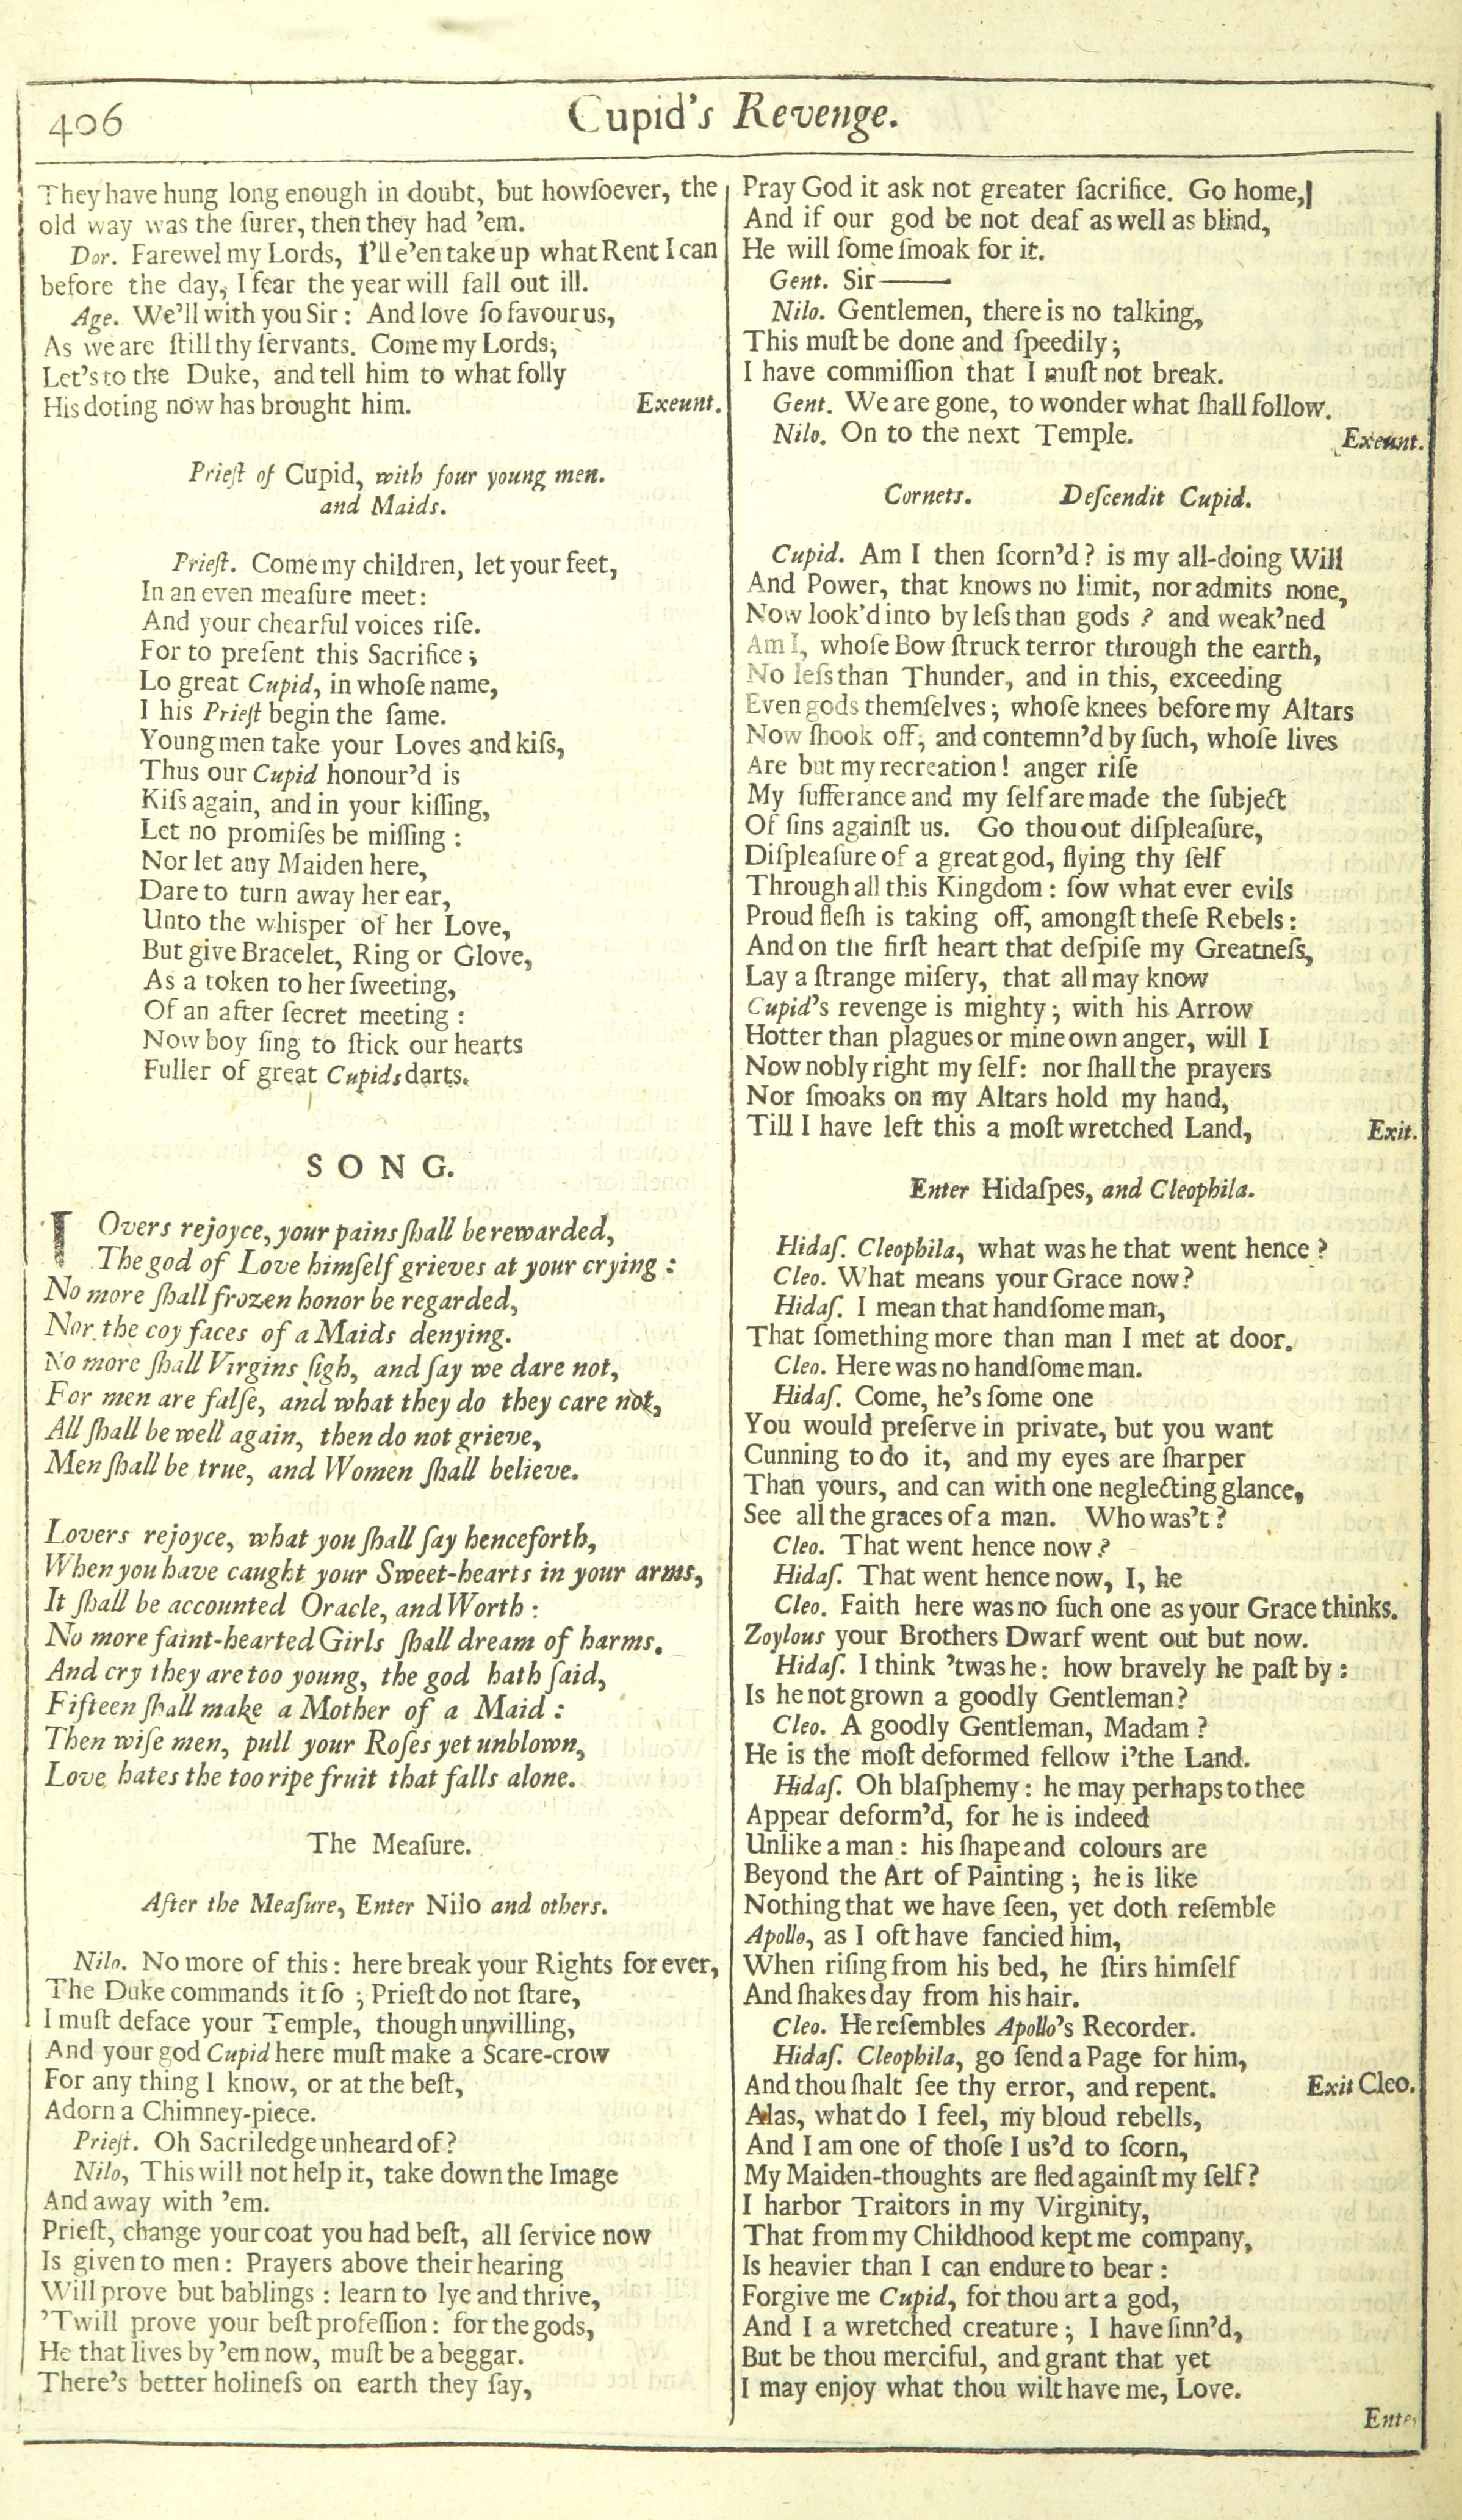 406
Cupid's Revenge.
They have hung long enough in doubt, but howſoever, the
old way was the ſurer, then they had 'em.
Dor. Farewel my Lords, I'll e'en take up what Rent I can
before the day, I fear the year will fall out ill.
Age. We'll with you Sir : And love ſo favour us,
As we are ſtill thy ſervants. Come my Lords;
Let's to the Duke, and tell him to what folly
His doting now has brought him. Exeunt.
Prieſt of Cupid, with four young men.
and Maids.
Prieſt. Come my children, let your feet,
In an even meaſure meet:
And your chearful voices riſe.
For to preſent this Sacrifice;
Lo great Cupid, in whoſe name,
I his Prieſt begin the ſame.
Young men take your Loves and kiſs,
Thus our Cupid honour'd is
Kiſs again, and in your kiſſing,
Let no promiſes be miſſing :
Nor let any Maiden here,
Dare to turn away her ear,
Unto the whisper of her Love,
But give Bracelet, Ring or Glove,
As a token to her ſweeting,
Of an after ſecret meeting :
Now boy ſing to ſtick our hearts
Fuller of great Cupids darts.
SONG.
LOvers rejoyce, your pains ſhall be rewarded,
The god of Love himſelf grieves at your crying :
No more ſhall frozen honor be regarded,
Nor the coy faces of a Maids denying.
No more ſhall Virgins ſigh, and ſay we dare not,
For men are falſe, and what they do they care not,
All ſhall be well again, then do not grieve,
Men ſhall be true, and Women ſhall believe.
Lovers rejoyce, what you ſhall ſay henceforth,
When you have caught your Sweet-hearts in your arms,
It ſhall be accounted Oracle, and Worth :
No more faint-hearted Girls ſhall dream of harms.
And cry they are too young, the god hath ſaid,
Fifteen ſhall make a Mother of a Maid :
Then wiſe men, pull your Roſes yet unblown,
Love hates the too ripe fruit that falls alone.
The Meaſure.
After the Meaſure, Enter Nilo and others.
Nilo. No more of this : here break your Rights for ever,
The Duke commands it ſo ; Prieſt do not ſtare,
I muſt deface your Temple, though unwilling,
And your god Cupid here muſt make a Scare-crow
For any thing I know, or at the beſt,
Adorn a Chimney-piece.
Prieſt. Oh Sacriledge unheard of?
Nilo, This will not help it, take down the Image
And away with 'em.
Prieſt, change your coat you had beſt, all ſervice now
Is given to men : Prayers above their hearing
Will prove but bablings : learn to lye and thrive,
'Twill prove your beſt profeſſion : for the gods,
He that lives by 'em now, muſt be a beggar.
There's better holineſs on earth they ſay,
Pray God it ask not greater ſacrifice. Go home,
And if our god be not deaf as well as blind,
He will ſome ſmoak for it.
Gent. Sir——
Nilo. Gentlemen, there is no talking,
This muſt be done and ſpeedily;
I have commiſſion that I muſt not break.
Gent. We are gone, to wonder what ſhall follow.
Nilo. On to the next Temple. Exeunt.
Cornets. Deſcendit Cupid.
Cupid. Am I then ſcorn'd? is my all-doing Will
And Power, that knows no limit, nor admits none,
Now look'd into by leſs than gods ? and weak'ned
Am I, whoſe Bow ſtruck terror through the earth,
No leſs than Thunder, and in this, exceeding
Even gods themſelves; whoſe knees before my Altars
Now ſhook off; and contemn'd by ſuch, whoſe lives
Are but my recreation! anger riſe
My ſufferance and my ſelf are made the ſubject
Of ſins againſt us. Go thou out diſpleaſure,
Diſpleaſure of a great god, flying thy ſelf
Through all this Kingdom : ſow what ever evils
Proud fleſh is taking off, amongſt theſe Rebels :
And on the firſt heart that deſpiſe my Greatneſs,
Lay a ſtrange miſery, that all may know
Cupid's revenge is mighty; with his Arrow
Hotter than plagues or mine own anger, will I
Now nobly right my ſelf: nor ſhall the prayers
Nor ſmoaks on my Altars hold my hand,
Till I have left this a moſt wretched Land, Exit.
Enter Hidaſpes, and Cleophila.
Hidaſ. Cleophila, what was he that went hence ?
Cleo. What means your Grace now?
Hidaſ. I mean that handſome man,
That ſomething more than man I met at door.
Cleo. Here was no handſome man.
Hidaſ. Come, he's ſome one
You would preſerve in private, but you want
Cunning to do it, and my eyes are ſharper
Than yours, and can with one neglecting glance,
See all the graces of a man. Who was't ?
Cleo. That went hence now ?
Hidaſ. That went hence now, I, he
Cleo. Faith here was no ſuch one as your Grace thinks.
Zoylous your Brothers Dwarf went out but now.
Hidaſ. I think 'twas he : how bravely he paſt by :
Is he not grown a goodly Gentleman?
Cleo. A goodly Gentleman, Madam ?
He is the moſt deformed fellow i'the Land.
Hidaſ. Oh blaſphemy : he may perhaps to thee
Appear deform'd, for he is indeed
Unlike a man : his ſhape and colours are
Beyond the Art of Painting ; he is like
Nothing that we have ſeen, yet doth reſemble
Apollo, as I oft have fancied him,
When riſing from his bed, he ſtirs himſelf
And ſhakes day from his hair.
Cleo. He reſembles Apollo's Recorder.
Hidaſ. Cleophila, go ſend a Page for him,
And thou ſhalt ſee thy error, and repent. Exit Cleo.
Alas, what do I feel, my bloud rebells,
And I am one of thoſe I us'd to ſcorn,
My Maiden-thoughts are fled againſt my ſelf?
I harbor Traitors in my Virginity,
That from my Childhood kept me company,
Is heavier than I can endure to bear :
Forgive me Cupid, for thou art a god,
And I a wretched creature; I have ſinn'd,
But be thou merciful, and grant that yet
I may enjoy what thou wilt have me, Love.
Enter